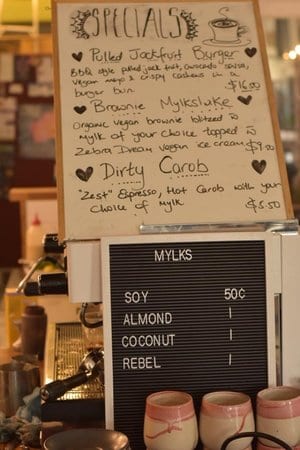 SPECIALS
Pulled Jackfruit Burger
BBQ style pulled jack fruit, avocado salsa,
vegan mayo & crispy cashews in a
burger bun. $16.00
Brownie Mylkshake
Organic vegan brownie blitzed to
Mylk of your choice topped
Zebra Dream vegan ice cream $9.00
Dirty Carob
"Zest" Espresso, Hot Carob with your
choice of Mylk $5.50
MYLKS
SOY 50¢
ALMOND 1
COCONUT 1
REBEL 1